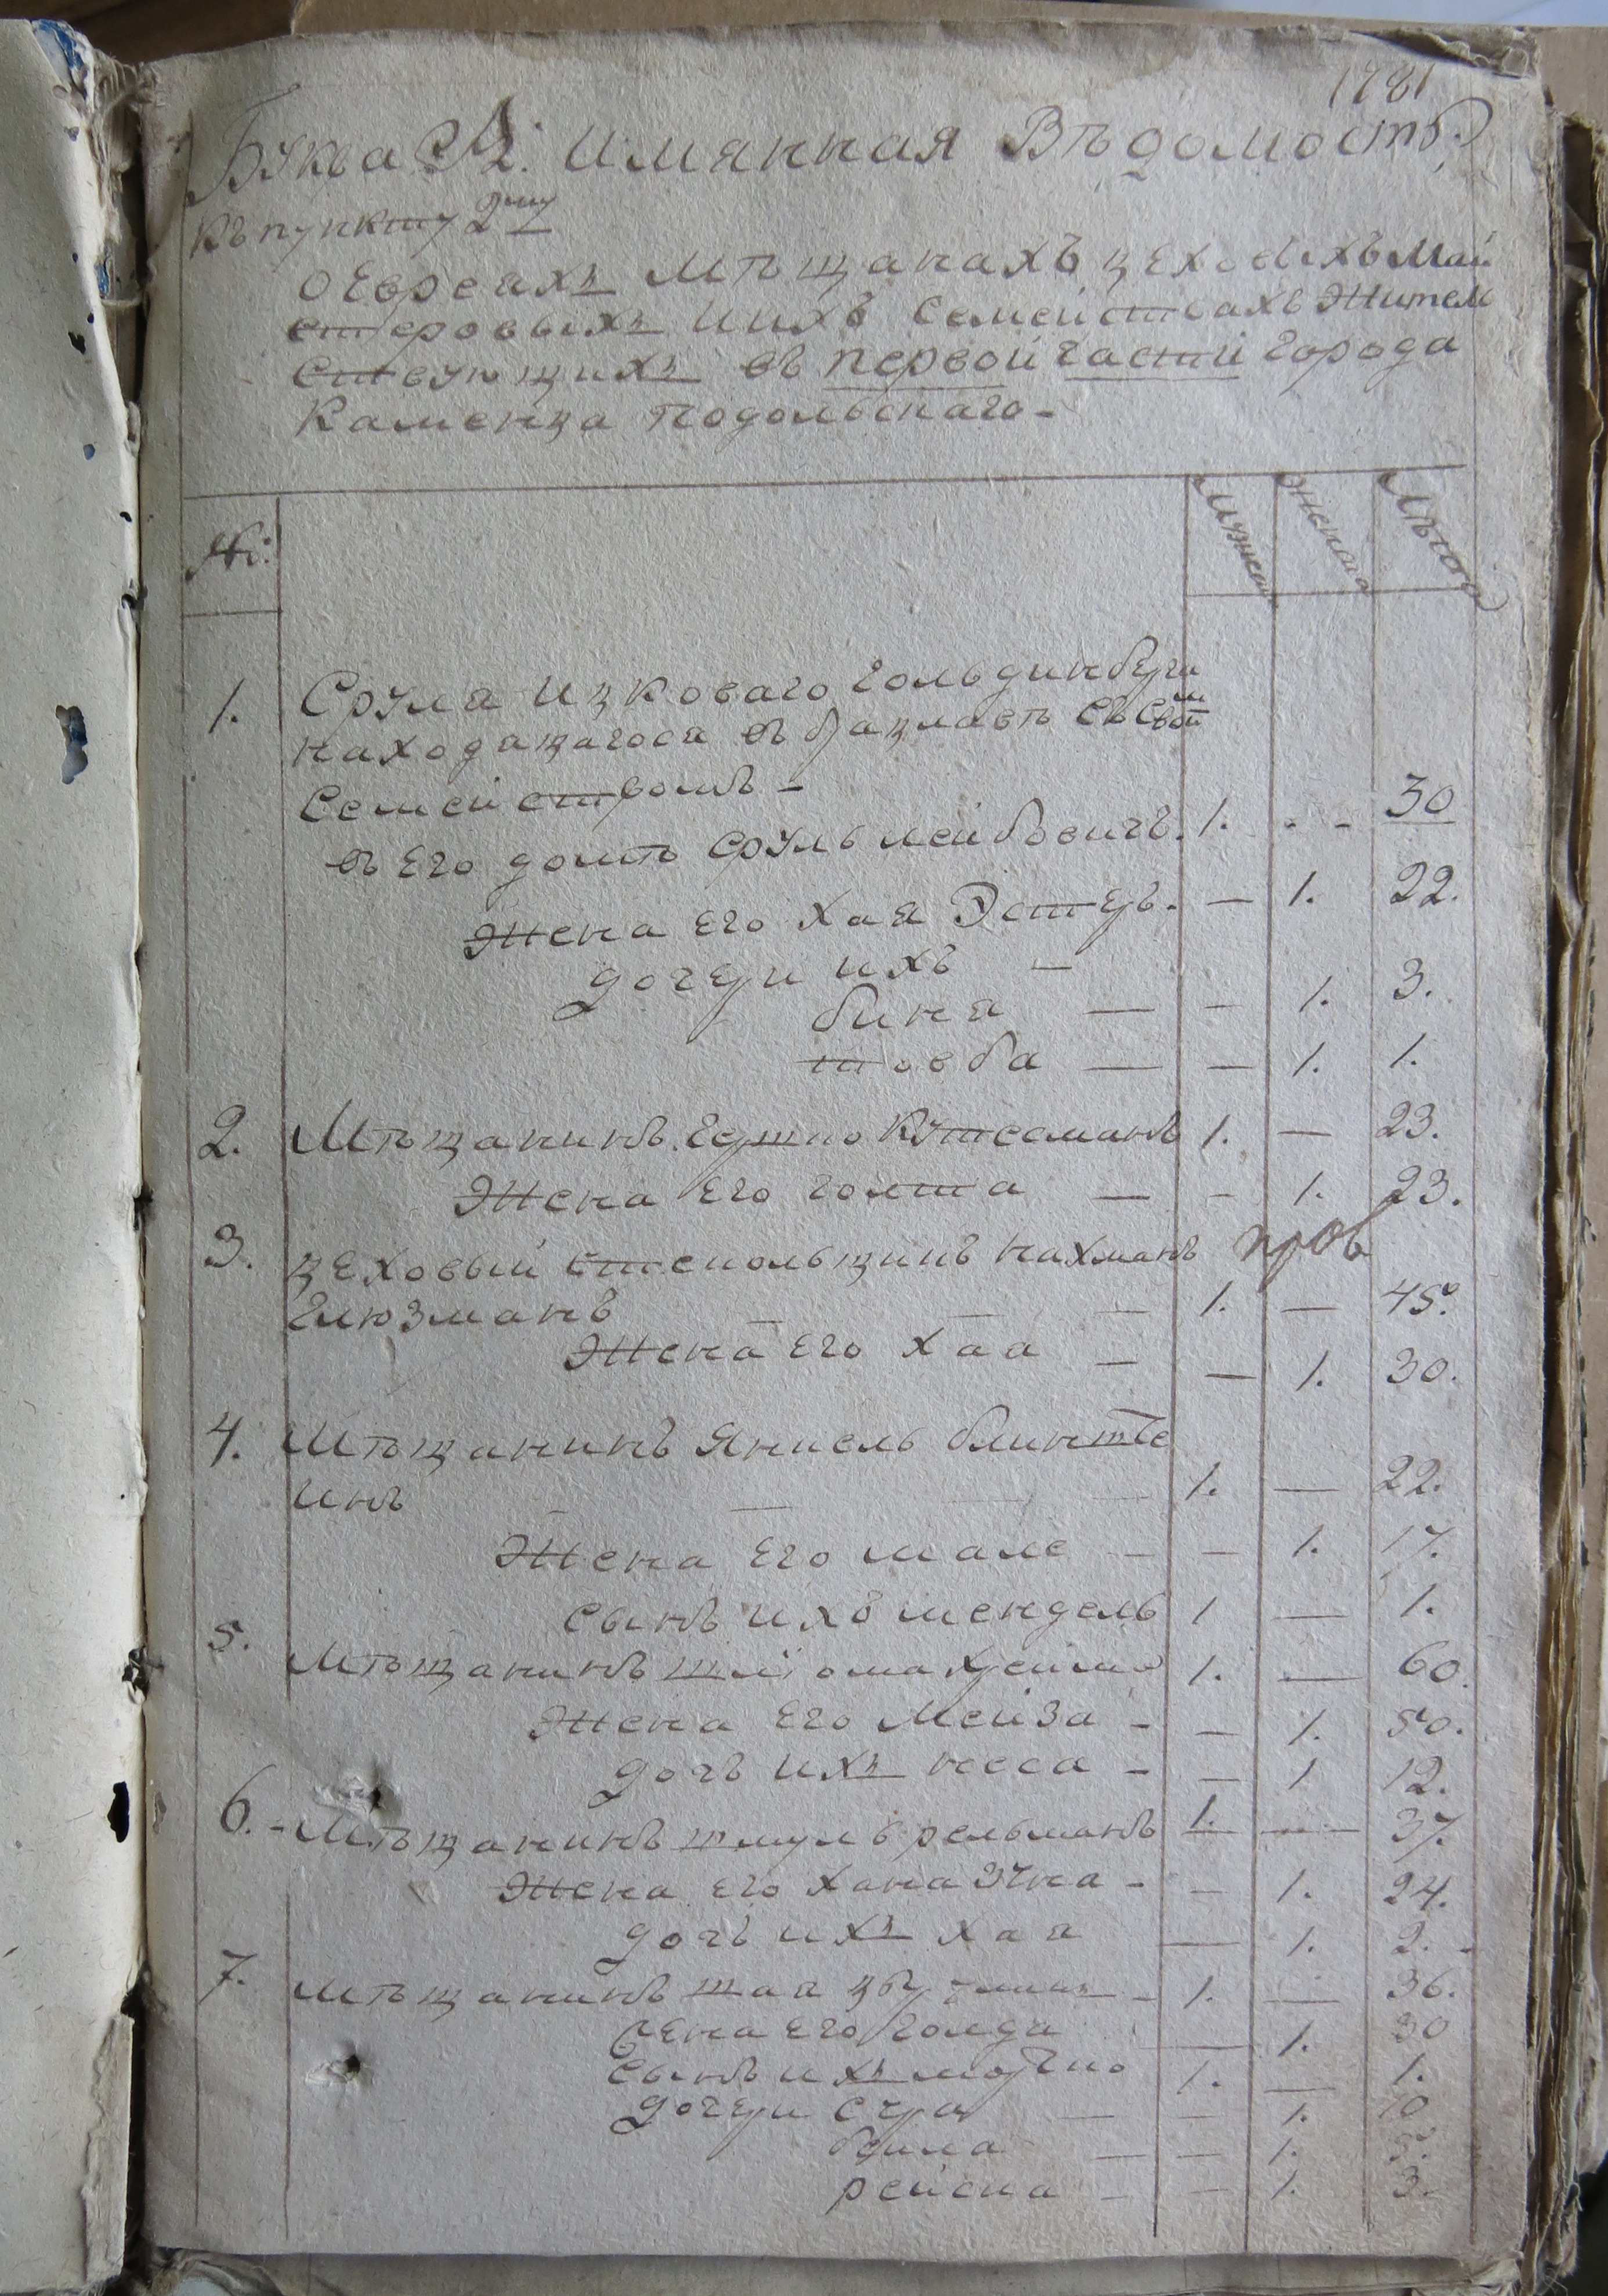 1781
Буква А. Имянная Вѣдомость
Къ пункту 2му
О Евреахъ Мѣщанахъ цеховыхъ май
стеровыхъ и ихъ Семействахъ Жител
ствующихъ въ первой части города
Каменца Подольскаго -
№:
мужеск
женска
Лѣта
1. Сруля Ицковаго Гольдинберга
находящагося въ Брацлавѣ съ Своим
Семействомъ -
въ Его домѣ Сруль Лейбовичъ. 1. - - 30
Жена Его Хая Эстеръ. — 1. 22.
Дочери ихъ —
Бина — — 1. 3.
Товба — — 1. 1.
2. Мѣщанинъ Гершко Кутсманъ 1. — 23.
Жена Его Голта — — 1. 23.
3. Цеховый стекольщикъ Нахманъ пров
Глюзманъ — — 1. — 45.
Жена Его Хая — — 1. 30.
4. Мѣщанинъ Янкель Блинште
инъ — — 1. — 22.
Жена Его Мале — — 1. 17.
Сынъ ихъ Мендель 1 — 1.
5. Мѣщанинъ Шліома 1. — 60.
Жена Его Мейза - — 1. 50.
Дочь ихъ Несса - — 1 12.
6. - Мѣщанинъ Шмуль Рельманъ 1. — 37.
Жена Его Хана Эчна - — 1. 24.
Дочь ихъ Хая — 1. 2.
7. Мѣщанинъ Шая - 1. — 36.
Жена Его Голда — 1. 30
Сынъ ихъ Мортко 1. — 1.
Дочери Сура — — 1. 10
Бейла — — 1. 5.
Рейсна — — 1. 3.